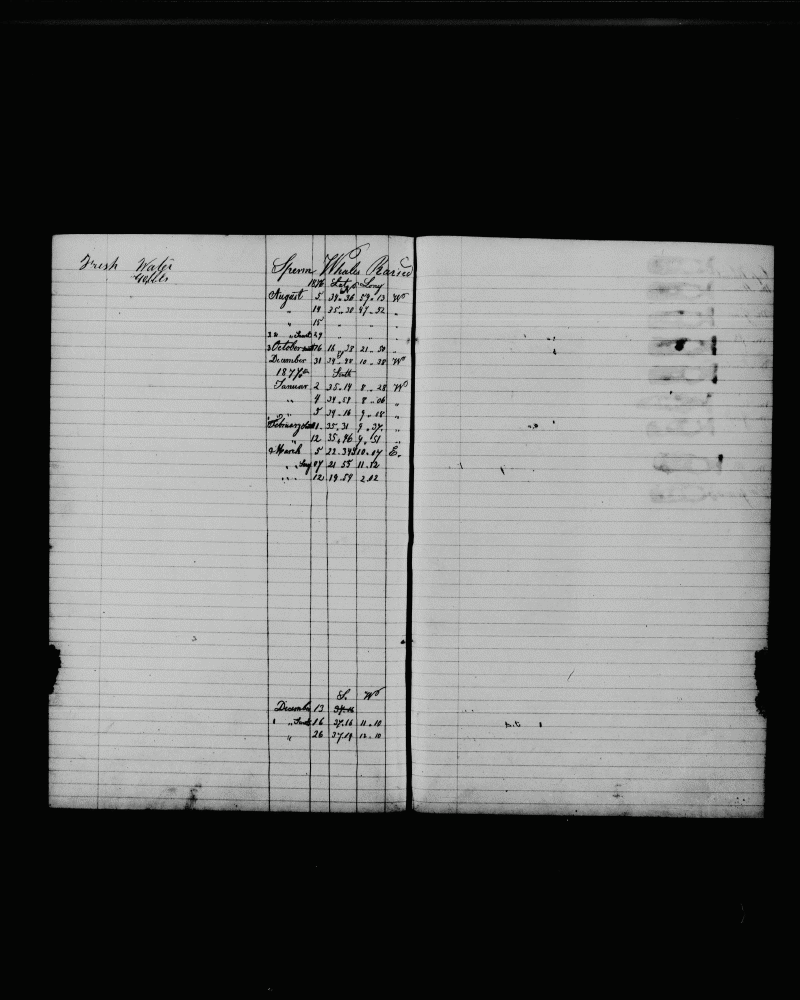 Fresh Water
40 blls
Sperm Whales Raised
1876 Lat N Long
August 5 39 " 36 59 " 13 W
" 14 35 " 30 47 " 32 "
" 15 " " "
2 " " Sunk 29 " " "
3 October 16 16 " 38 21 " 50 "
December 31 34 " 48 10 " 38 W
1877 South
Januar 2 35 " 14 8 " 28 W
" 4 34 " 59 8 " 06 "
" 5 34 " 16 9 " 18 "
February 1 35 " 31 9 " 37 "
" 12 35 " 46 9 " 51 "
March 5 22 " 34 S 10 " 47 E.
" " 07 21 55 11 " 12
" " 12 19 " 59 2 " 02
S. W
December 13
1 " Sunk 16 37 " 16 11 " 10
" 26 37 " 19 12 " 10